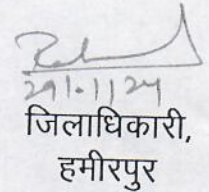 29/11/24
जिलाधिकारी,
हमीरपुर